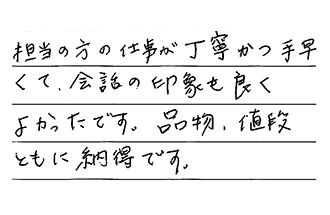 担当の方の仕事が丁寧かつ手早
くて、会話の印象も良く
よかったです。品物、値段
ともに納得です。